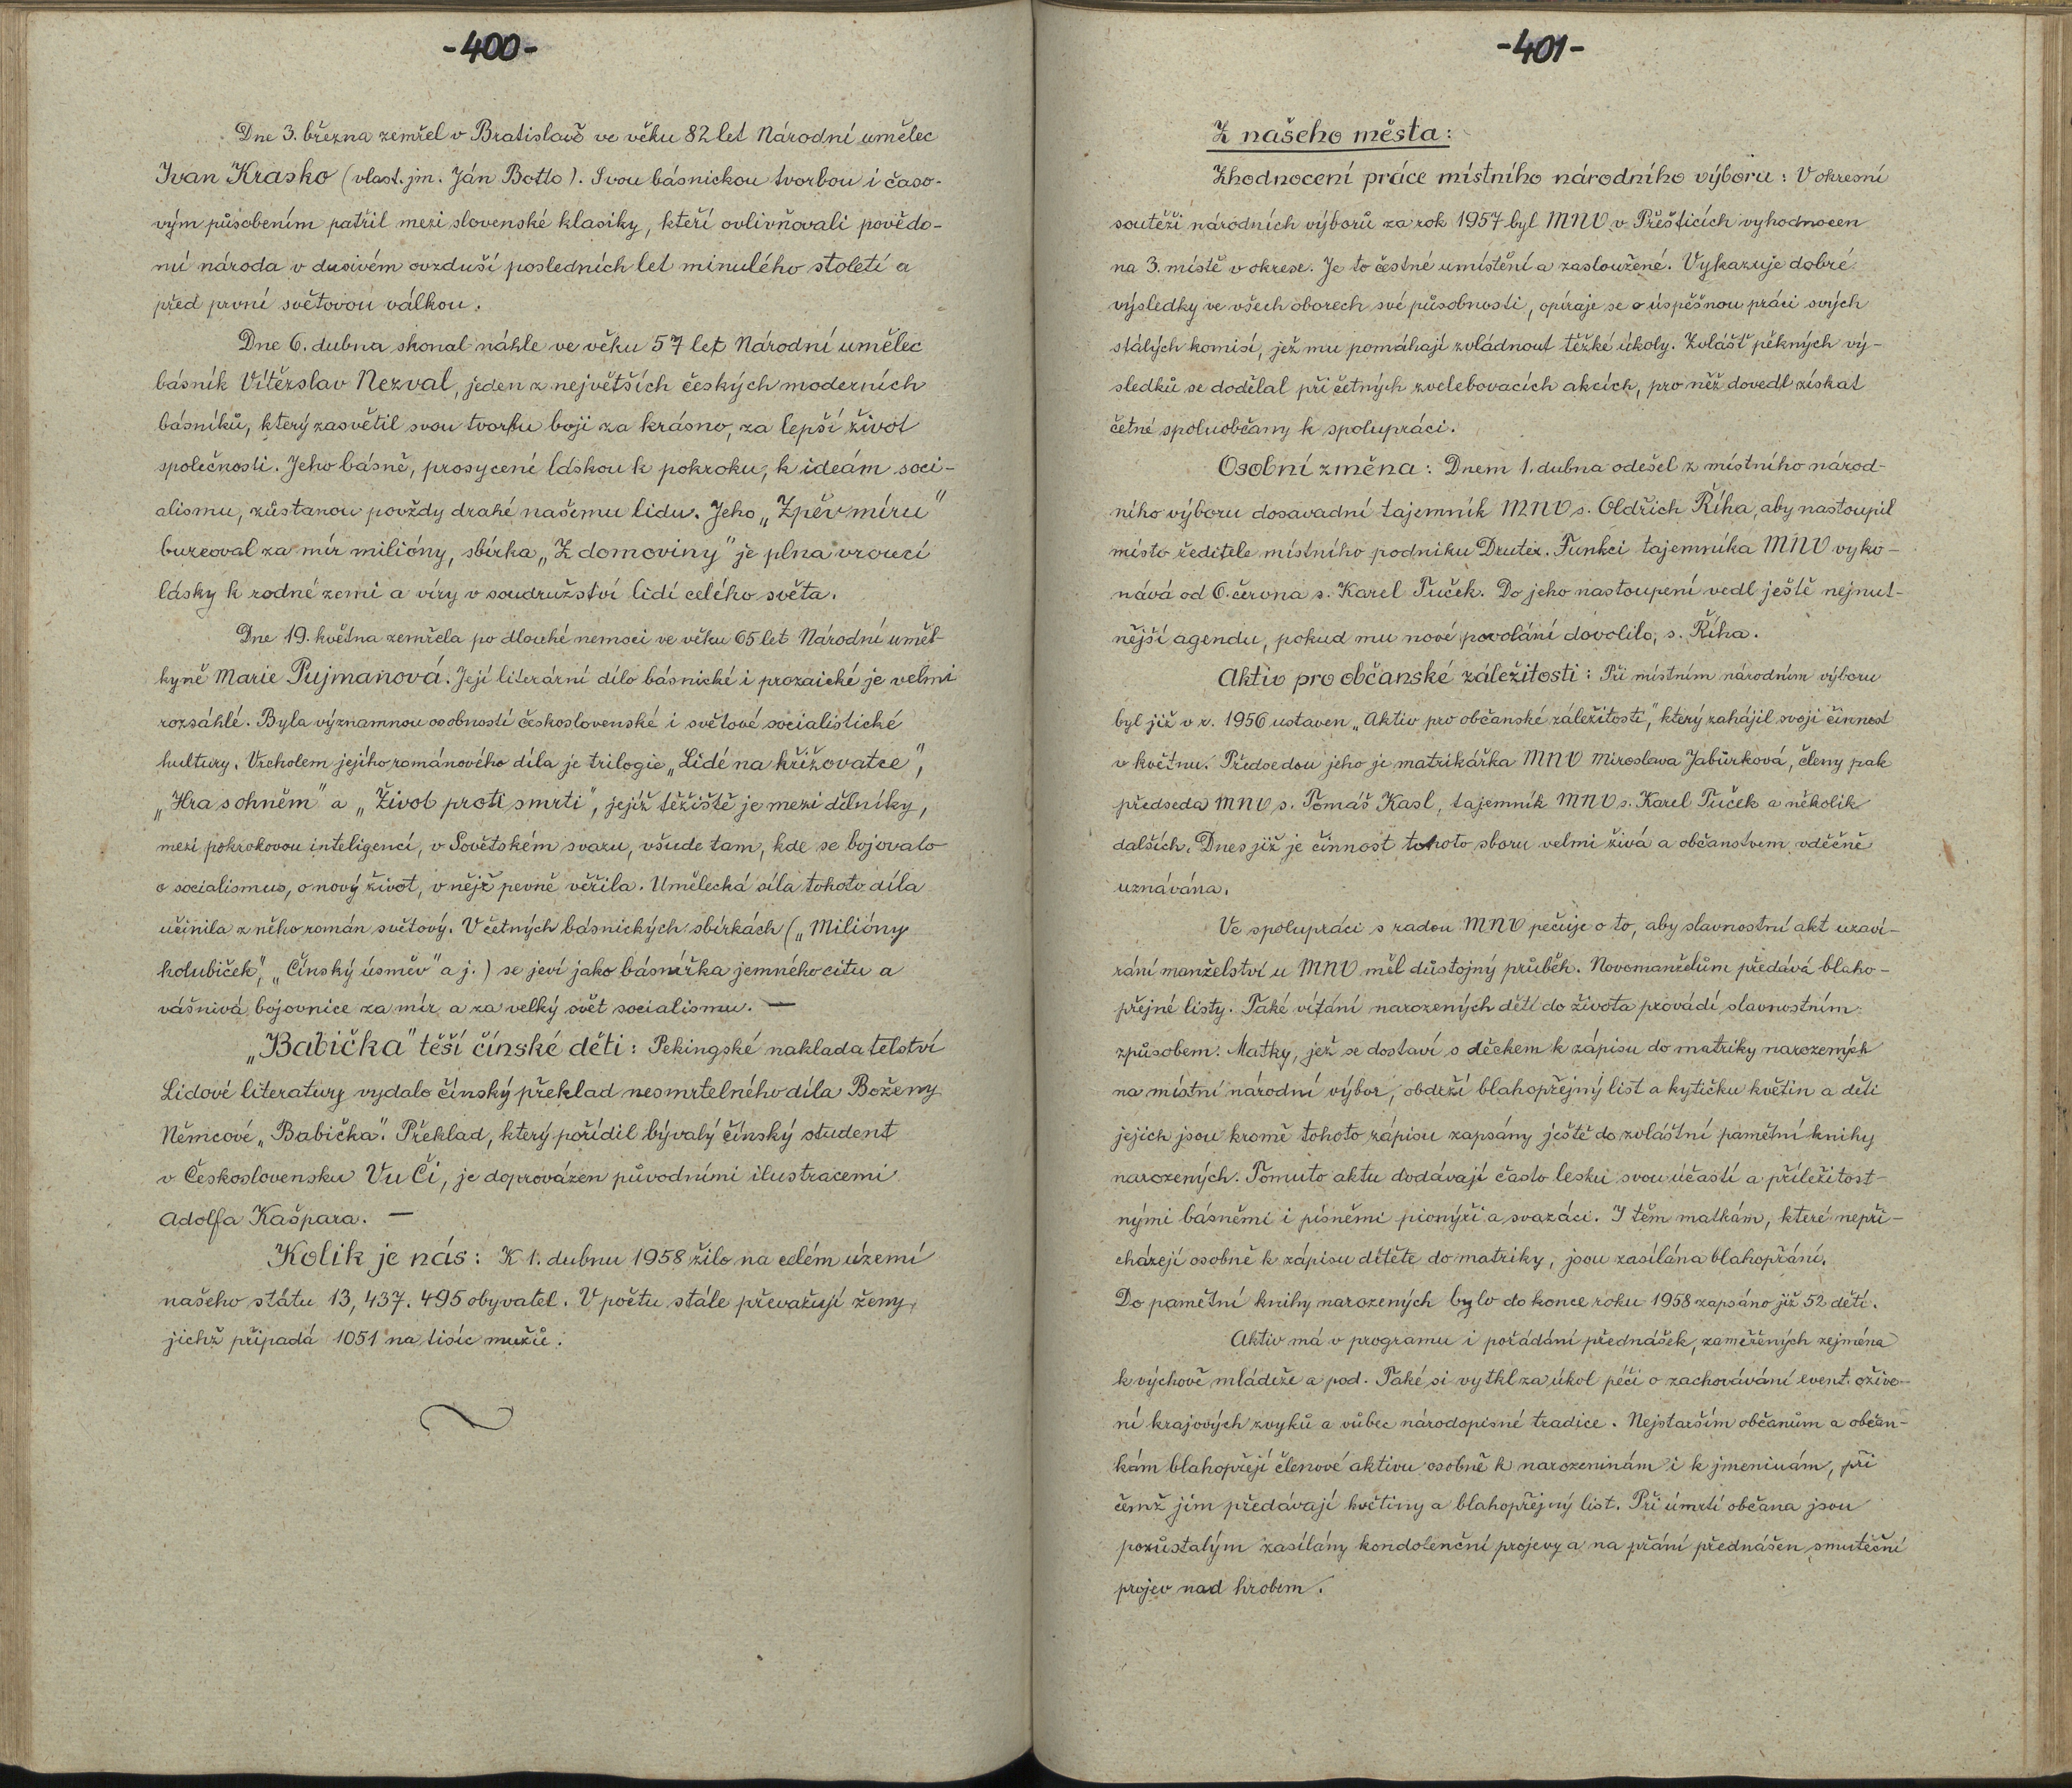 -400-
Dne 3. března zemřel v Bratislavě ve věku 82 let Národní umělec
Ivan Krasko (vlast. jm. Ján Botto). Svou básnickou tvorbou i časo-
vým působením patřil mezi slovenské klasiky, kteří ovlivňovali povědo-
mí národa v dusivém ovzduší posledních let minulého století a
před první světovou válkou.
Dne 6. dubna skonal náhle ve věku 57 let Národní umělec
básník Vítězslav Nezval, jeden z největších českých moderních
básníků, který zasvětil svou tvorbu boji za krásno, za lepší život
společnosti. Jeho básně, prosycené láskou k pokroku, k ideám soci-
alismu, zůstanou povždy drahé našemu lidu. Jeho „Zpěv míru"
burcoval za mír milióny, sbírka „Z domoviny" je plna vroucí
lásky k rodné zemi a víry v soudružství lidí celého světa.
Dne 19. května zemřela po dlouhé nemoci ve věku 65 let Národní uměl-
kyně Marie Pujmanová. Její literární dílo básnické i prozaické je velmi
rozsáhlé. Byla významnou osobností československé i světové socialistické
kultury. Vrcholem jejího románového díla je trilogie „Lidé na křižovatce",
„Hra s ohněm" a „Život proti smrti", jejíž těžiště je mezi dělníky,
mezi pokrokovou inteligencí, v Sovětském svazu, všude tam, kde se bojovalo
o socialismus, o nový život, v nějž pevně věřila. Umělecká síla tohoto díla
učinila z něho román světový. V četných básnických sbírkách („Milióny
holubiček", „Čínský úsměv" a j.) se jeví jako básnířka jemného citu a
vášnivá bojovnice za mír a za velký svět socialismu. —
„Babička" těší čínské děti: Pekingské nakladatelství
Lidové literatury vydalo čínský překlad nesmrtelného díla Boženy
Němcové „Babička". Překlad, který pořídil bývalý čínský student
v Československu Vu Či, je doprovázen původními ilustracemi
Adolfa Kašpara. —
Kolik je nás: K 1. dubnu 1958 žilo na celém území
našeho státu 13,437.495 obyvatel. V počtu stále převažují ženy,
jichž připadá 1051 na tisíc mužů.
-401-
Z našeho města:
Zhodnocení práce místního národního výboru: V okresní
soutěži národních výborů za rok 1957 byl MNV v Přešticích vyhodnocen
na 3. místě v okrese. Je to čestné umístění a zasloužené. Vykazuje dobré
výsledky ve všech oborech své působnosti, opíraje se o úspěšnou práci svých
stálých komisí, jež mu pomáhají zvládnout těžké úkoly. Zvlášť pěkných vý-
sledků se dodělal při četných zvelebovacích akcích, pro něž dovedl získat
četné spoluobčany k spolupráci.
Osobní změna: Dnem 1. dubna odešel z místního národ-
ního výboru dosavadní tajemník MNV s. Oldřich Říha, aby nastoupil
místo ředitele místního podniku Drutex. Funkci tajemníka MNV vyko-
nává od 6. června s. Karel Tuček. Do jeho nastoupení vedl ještě nejnut-
nější agendu, pokud mu nové povolání dovolilo, s. Říha.
Aktiv pro občanské záležitosti: Při místním národním výboru
byl již v r. 1956 ustaven „Aktiv pro občanské záležitosti", který zahájil svoji činnost
v květnu. Předsedou jeho je matrikářka MNV Miroslava Jabůrková, členy pak
předseda MNV s. Tomáš Kasl, tajemník MNV s. Karel Tuček a několik
dalších. Dnes již je činnost tohoto sboru velmi živá a občanstvem vděčně
uznávána.
Ve spolupráci s radou MNV pečuje o to, aby slavnostní akt uzaví-
rání manželství u MNV měl důstojný průběh. Novomanželům předává blaho-
přejné listy. Také vítání narozených dětí do života provádí slavnostním
způsobem. Matky, jež se dostaví s děckem k zápisu do matriky narozených
na místní národní výbor, obdrží blahopřejný list a kytičku květin a děti
jejich jsou kromě tohoto zápisu zapsány ještě do zvláštní pamětní knihy
narozených. Tomuto aktu dodávají často lesku svou účastí a příležitost-
nými básněmi i písněmi pionýři a svazáci. I těm matkám, které nepři-
cházejí osobně k zápisu dítěte do matriky, jsou zasílána blahopřání.
Do pamětní knihy narozených bylo do konce roku 1958 zapsáno již 52 dětí.
Aktiv má v programu i pořádání přednášek, zaměřených zejména
k výchově mládeže a pod. Také si vytkl za úkol péči o zachovávání event. oživo-
ní krajových zvyků a vůbec národopisné tradice. Nejstarším občanům a občan-
kám blahopřejí členové aktivu osobně k narozeninám i k jmeninám, při
čemž jim předávají květiny a blahopřejný list. Při úmrtí občana jsou
pozůstalým zasílány kondolenční projevy a na přání přednášen smuteční
projev nad hrobem.